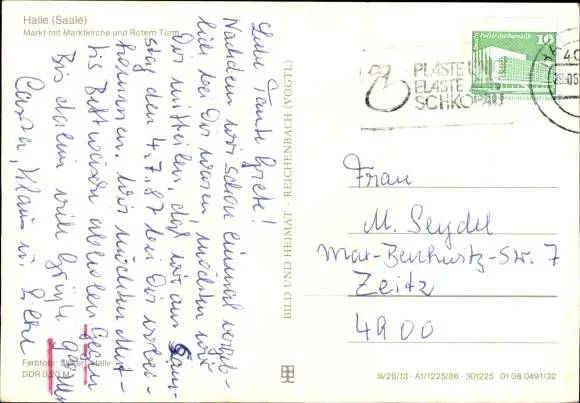 Halle (Saale)
Markt mit Marktkirche und Rotem Turm
Liebe Tante Grete!
Nachdem wir schon einmal vergeb-
lich bei Dir waren möchten wir
Dir mitteilen, daß wir am Sams-
tag den 4.7.87 bei Dir vorbei-
kommen. Wir möchten
bis Bettwäsche abholen
Bis dahin viele Grüße
Klaus
Farbfoto: Halle
DDR 0,20 M
BILD UND HEIMAT · REICHENBACH (VOGTL)
PLASTE UND
ELASTE
SCHKOPAU
10
Frau
M. Seydel
Max-Benkwitz-Str. 7
Zeitz
4900
III/26/13 · A1/1225/86 · 301225 01 08 0491/32